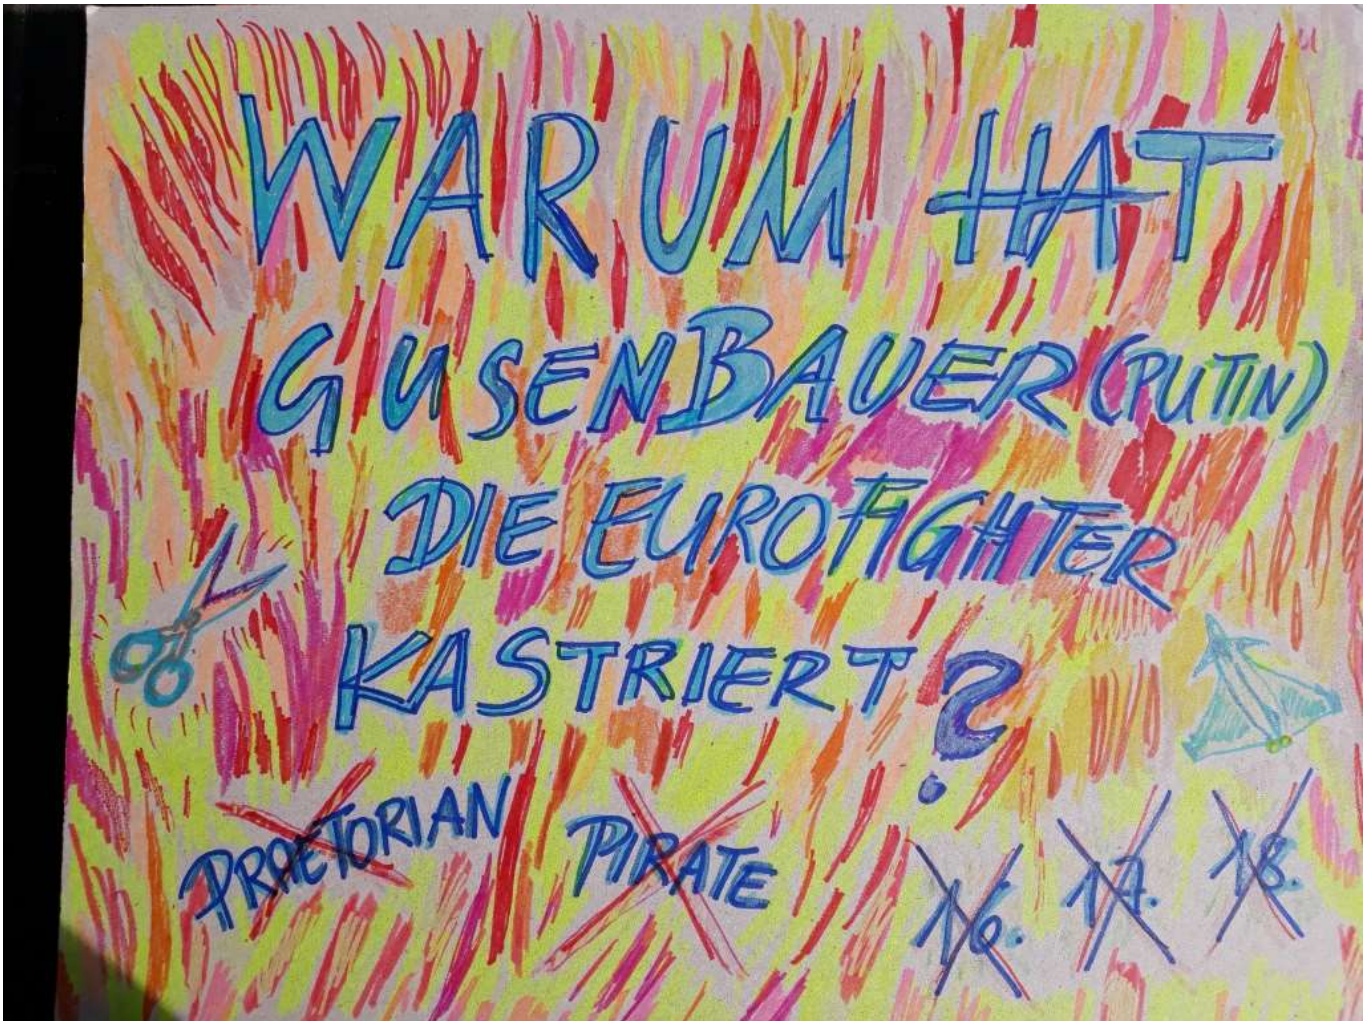 WARUM HAT
GUSENBAUER (PUTIN)
DIE EUROFIGHTER
KASTRIERT?
PRAETORIAN PIRATE 16. 17. 18.